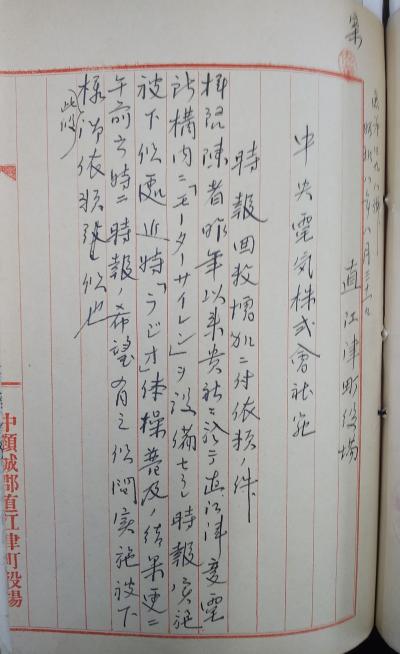 案
昭和八年八月三十一日
直江津町役場
中央電気株式会社宛
時報回数増加ニ付依頼ノ件
拝啓陳者昨年以来貴社ニ於テ直江津変電
所構内ニ「モーターサイレン」ヲ設備セラレ時報実施
被下候処近時「ラジオ」体操普及ノ結果更ニ
午前六時ニ時報ノ希望有之候間実施被下
様御依頼致候也
中頸城郡直江津町役場